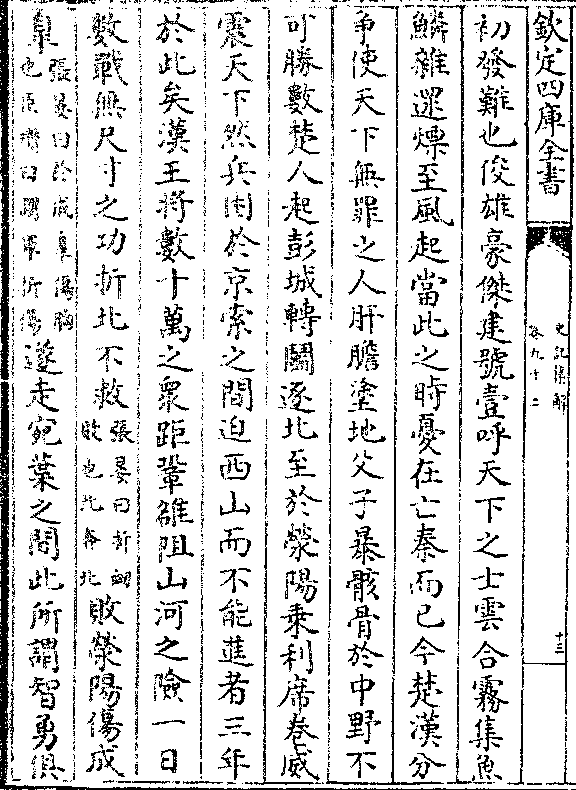 欽定四庫全書
史記集解
卷九十二
十三
初發難也俊雄豪傑建號壹呼天下之士雲合霧集魚
鱗雜遝熛至風起當此之時憂在亡秦而已今楚漢分
爭使天下無罪之人肝膽塗地父子暴骸骨於中野不
可勝數楚人起彭城轉鬬逐北至於滎陽乗利席卷威
震天下然兵困於京索之間迫西山而不能進者三年
於此矣漢王將數十萬之衆距鞏雒阻山河之險一日
數戰無尺寸之功折北不救張晏曰折衂敗也北奔北敗滎陽傷成
臯張晏曰於成臯傷胸也臣瓚曰謂軍折傷遂走宛葉之間此所謂智勇俱